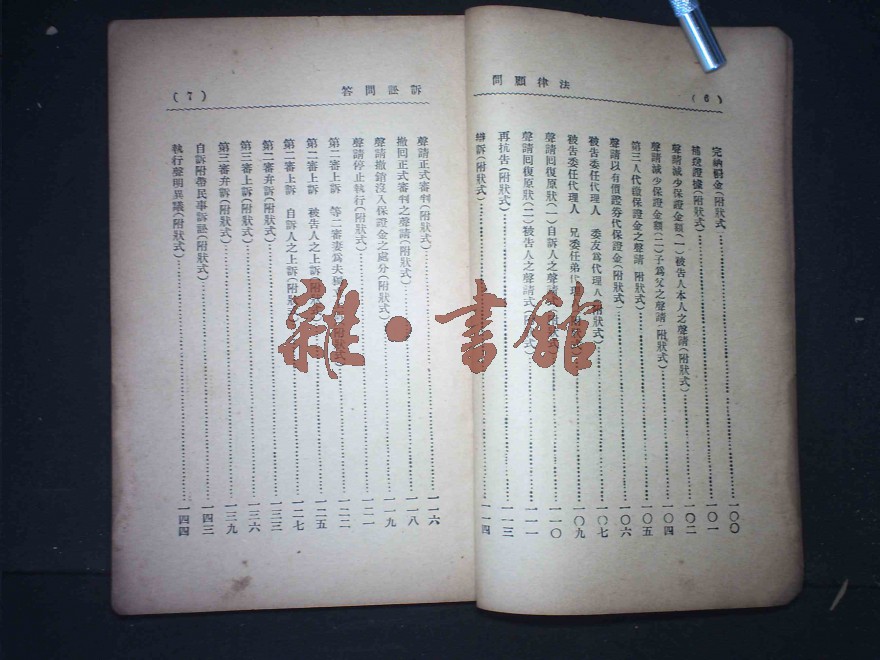 法律顧問
(6)
完納罰金(附狀式)…………一〇〇
補發證據(附狀式)…………一〇一
聲請減少保證金額(一)被告人本人之聲請(附狀式)…………一〇二
聲請減少保證金額(二)子爲父之聲請(附狀式)…………一〇四
第三人代繳保證金之聲請(附狀式)…………一〇五
聲請以有價證券代保證金(附狀式)…………一〇六
被告委任代理人 委友爲代理人(附狀式)…………一〇七
被告委任代理人 兄委任弟代理…………一〇九
聲請回復原狀(一)自訴人之聲請…………一一〇
聲請回復原狀(二)被告人之聲請…………一一一
再抗告(附狀式)…………一一三
辯訴(附狀式)…………一一四
訴訟問答
(7)
聲請正式審判(附狀式)…………一一六
撤回正式審判之聲請(附狀式)…………一一八
聲請撤銷沒入保證金之處分(附狀式)…………一一九
聲請停止執行(附狀式)…………一二一
第二審上訴 等二審妻爲夫…………一二二
第二審上訴 被告人之上訴…………一二五
第二審上訴 自訴人之上訴(附狀式)…………一二七
第二審弁訴(附狀式)…………一三三
第三審上訴(附狀式)…………一三六
第三審弁訴(附狀式)…………一三九
自訴附帶民事訴訟(附狀式)…………一四三
執行聲明異議(附狀式)…………一四四
雜·書館